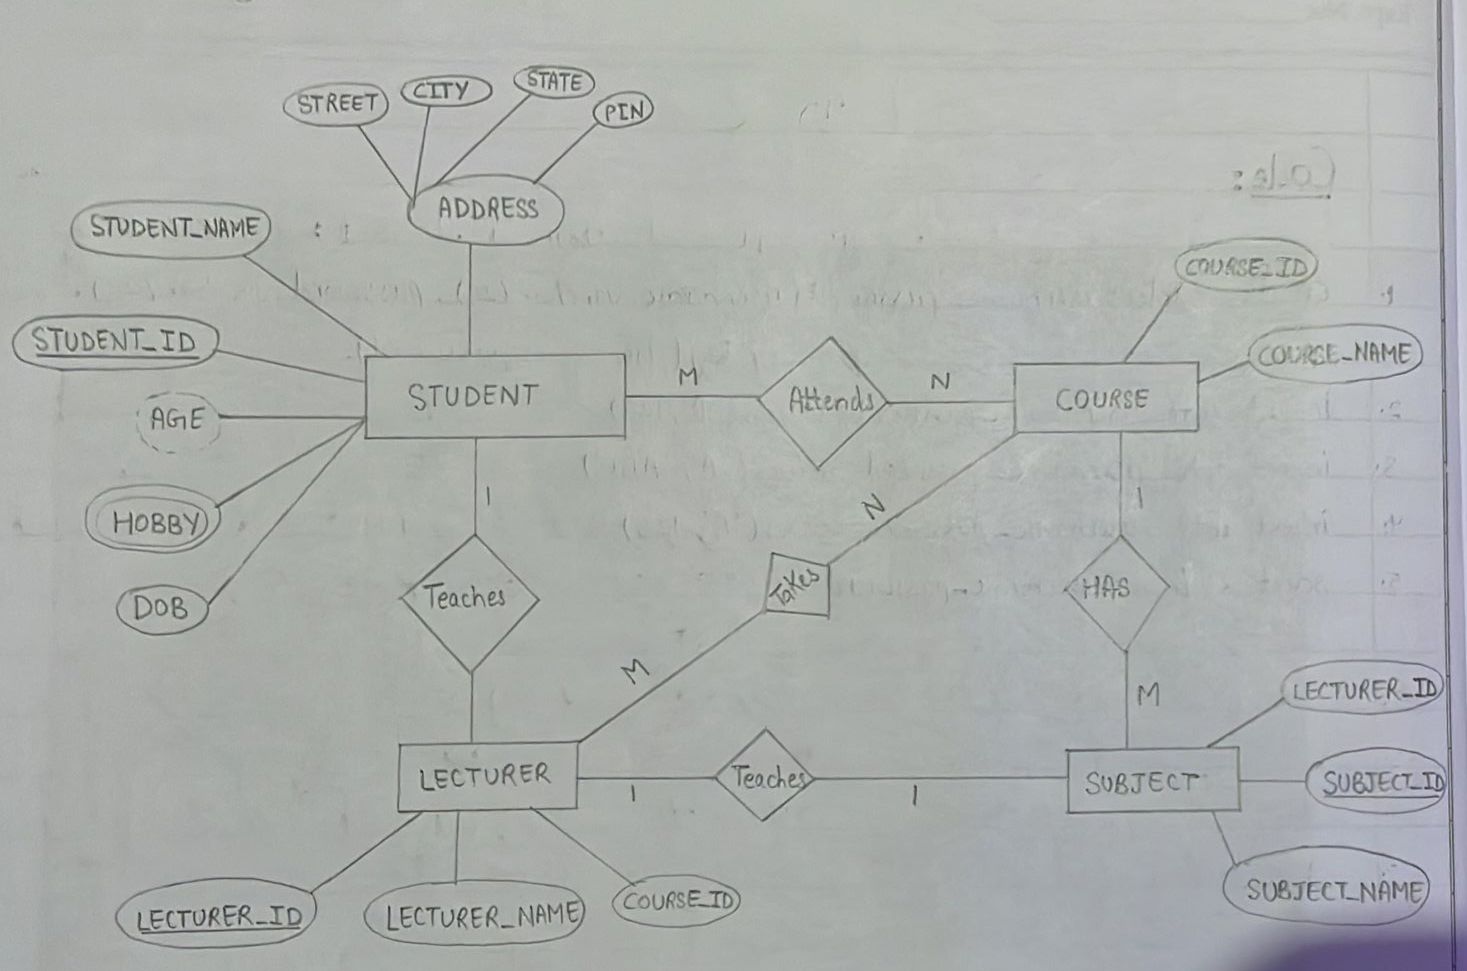 STREET
CITY
STATE
PIN
ADDRESS
STUDENT_NAME
STUDENT_ID
AGE
HOBBY
DOB
STUDENT
M
Attends
N
COURSE
COURSE_ID
COURSE_NAME
1
Teaches
N
Takes
M
1
HAS
M
LECTURER
1
Teaches
1
SUBJECT
LECTURER_ID
SUBJECT_ID
SUBJECT_NAME
LECTURER_ID
LECTURER_NAME
COURSE_ID
Code: